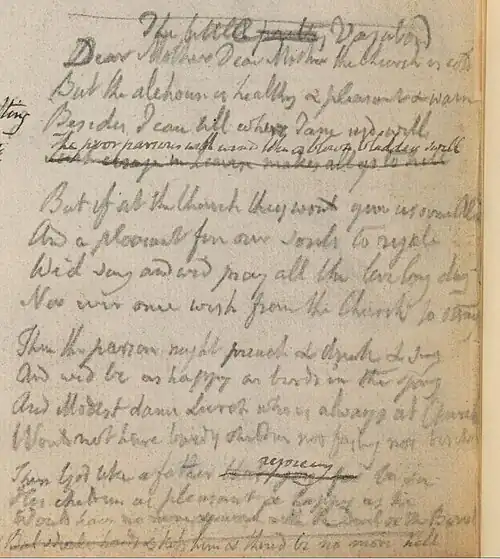 The little pretty Vagabond
Dear Mother Dear Mother the church is cold
But the alehouse is healthy & pleasant & warm
Besides I can tell where I am usd well
The poor parsons with wind like a blown bladder swell
makes all go to hell
But if at the Church they woud give us some Ale
And a pleasant fire our souls to regale
We'd sing and we'd pray all the live long day
Nor ever once wish from the Church to stray
Then the parson might preach & drink & sing
And wed be as happy as birds in the spring
And Modest dame Lurch who is always at Church
Would not have bandy children nor fasting nor birch
rejoicing
Then God like a father to see
His children as pleasant & happy as he
Would have no more quarrel with the Devil or the Barrel